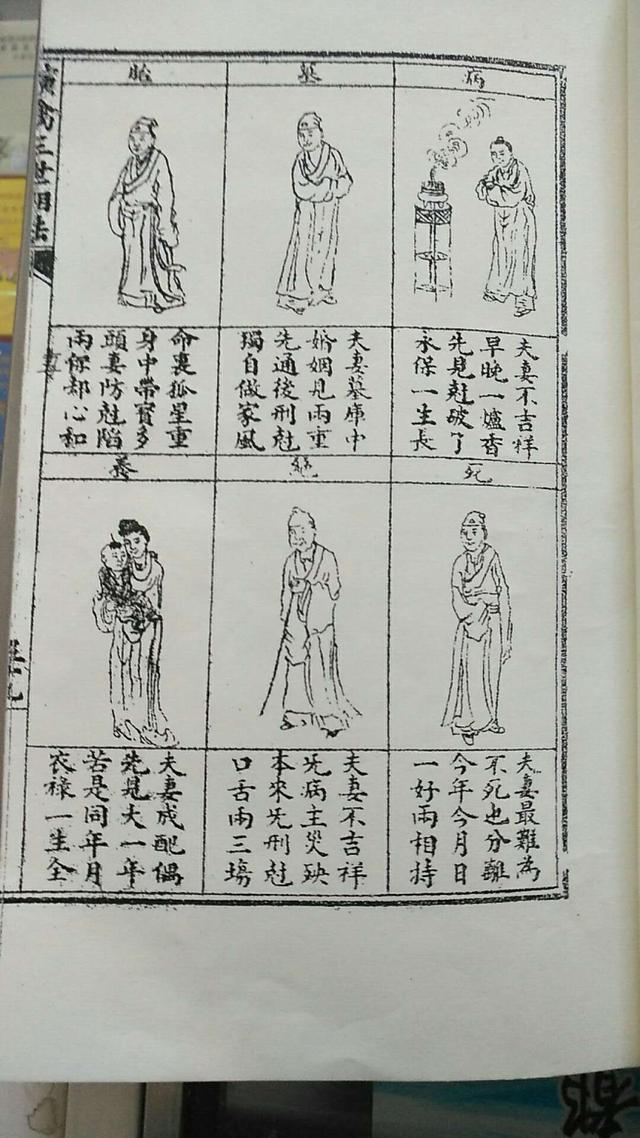 病
夫妻不吉祥
早晚一爐香
先見尅破了
永保一生長
墓
夫妻墓庫中
婚姻見兩重
先通後刑尅
獨自做家風
胎
命裏孤星重
身中帶寶多
頭妻防尅陷
兩保却心和
死
夫妻最難為
不死也分離
今年今月日
一好兩相持
絕
夫妻不吉祥
旡病主災殃
本來旡刑尅
口舌兩三塲
養
夫妻成配偶
先是大一年
苦是同年月
衣祿一生全
演禽三世相法
都